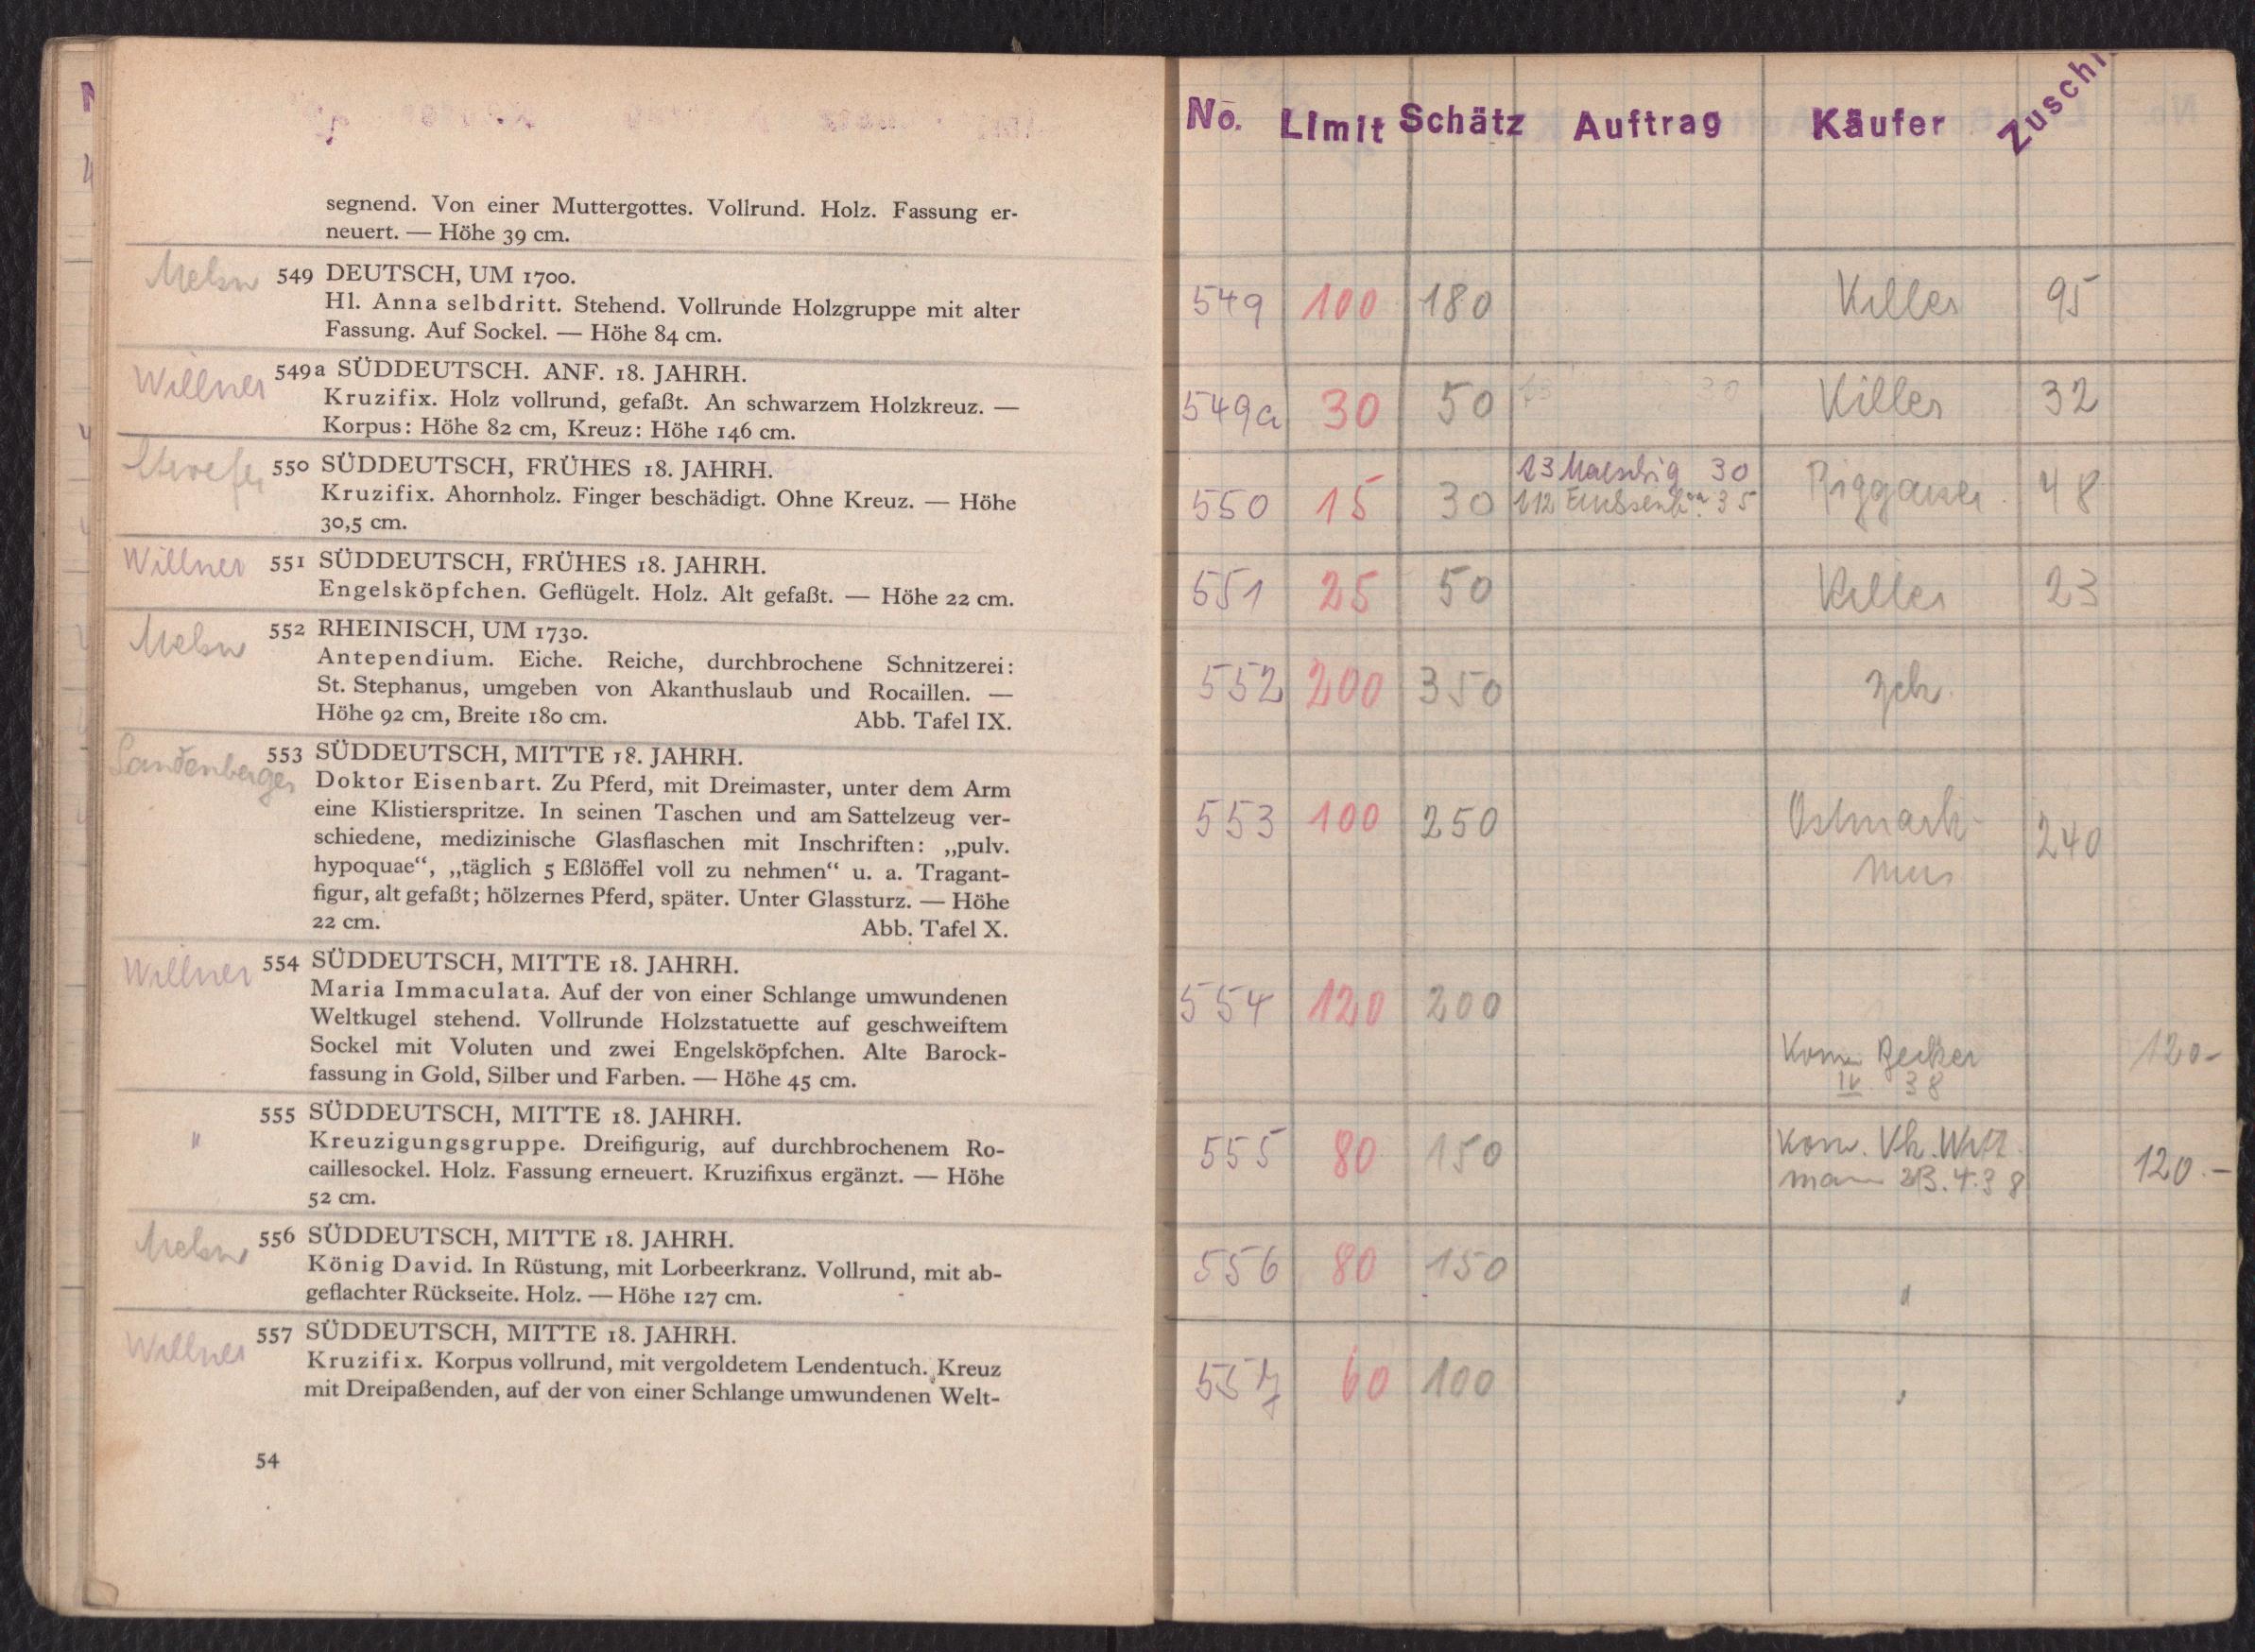 segnend. Von einer Muttergottes. Vollrund. Holz. Fassung er-
neuert. — Höhe 39 cm.
549 DEUTSCH, UM 1700.
Hl. Anna selbdritt. Stehend. Vollrunde Holzgruppe mit alter
Fassung. Auf Sockel. — Höhe 84 cm.
Willner 549a SÜDDEUTSCH. ANF. 18. JAHRH.
Kruzifix. Holz vollrund, gefaßt. An schwarzem Holzkreuz. —
Korpus: Höhe 82 cm, Kreuz: Höhe 146 cm.
550 SÜDDEUTSCH, FRÜHES 18. JAHRH.
Kruzifix. Ahornholz. Finger beschädigt. Ohne Kreuz. — Höhe
30,5 cm.
Willner 551 SÜDDEUTSCH, FRÜHES 18. JAHRH.
Engelsköpfchen. Geflügelt. Holz. Alt gefaßt. — Höhe 22 cm.
552 RHEINISCH, UM 1730.
Antependium. Eiche. Reiche, durchbrochene Schnitzerei:
St. Stephanus, umgeben von Akanthuslaub und Rocaillen. —
Höhe 92 cm, Breite 180 cm. Abb. Tafel IX.
Sandenberger 553 SÜDDEUTSCH, MITTE 18. JAHRH.
Doktor Eisenbart. Zu Pferd, mit Dreimaster, unter dem Arm
eine Klistierspritze. In seinen Taschen und am Sattelzeug ver-
schiedene, medizinische Glasflaschen mit Inschriften: „pulv.
hypoquae“, „täglich 5 Eßlöffel voll zu nehmen“ u. a. Tragant-
figur, alt gefaßt; hölzernes Pferd, später. Unter Glassturz. — Höhe
22 cm. Abb. Tafel X.
Willner 554 SÜDDEUTSCH, MITTE 18. JAHRH.
Maria Immaculata. Auf der von einer Schlange umwundenen
Weltkugel stehend. Vollrunde Holzstatuette auf geschweiftem
Sockel mit Voluten und zwei Engelsköpfchen. Alte Barock-
fassung in Gold, Silber und Farben. — Höhe 45 cm.
" 555 SÜDDEUTSCH, MITTE 18. JAHRH.
Kreuzigungsgruppe. Dreifigurig, auf durchbrochenem Ro-
caillesockel. Holz. Fassung erneuert. Kruzifixus ergänzt. — Höhe
52 cm.
556 SÜDDEUTSCH, MITTE 18. JAHRH.
König David. In Rüstung, mit Lorbeerkranz. Vollrund, mit ab-
geflachter Rückseite. Holz. — Höhe 127 cm.
Willner 557 SÜDDEUTSCH, MITTE 18. JAHRH.
Kruzifix. Korpus vollrund, mit vergoldetem Lendentuch. Kreuz
mit Dreipaßenden, auf der von einer Schlange umwundenen Welt-
54
No. Limit Schätz Auftrag Käufer Zuschl
549 100 180 Killer 95
549a 30 50 30 Killer 32
30
550 15 30 35 48
551 25 50 Killer 23
552 200 350
553 100 250 Ostmark
240
554 120 200
Becker 120-
IV. 38
555 80 150 120.-
23.4.38
556 80 150 "
557 60 100 "